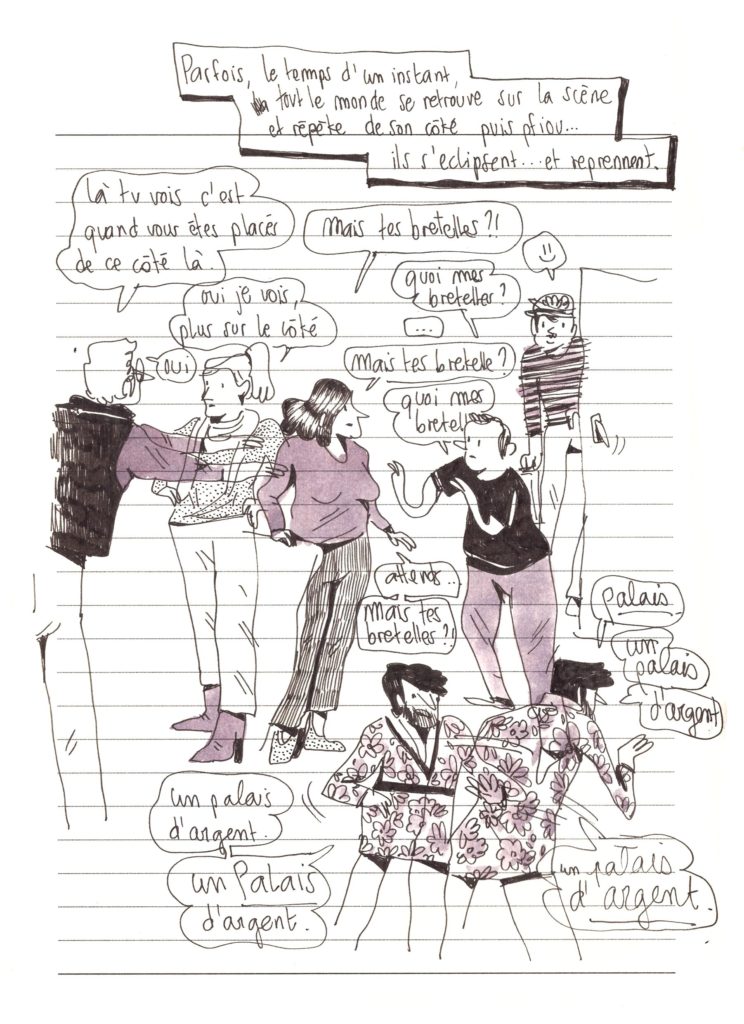 Parfois, le temps d'un instant,
tout le monde se retrouve sur la scène
et répète de son côté puis pfiou...
ils s'éclipsent... et reprennent.
là tu vois c'est
quand vous êtes placés
de ce côté là.
oui je vois,
plus sur le côté
oui
mais tes bretelles?!
quoi mes
bretelles?
...
mais tes bretelle?
quoi mes
bretell
attends..
mais tes
bretelles?!
palais.
un
palais
d'argent
un palais
d'argent.
un Palais
d'argent.
un palais
d'argent.